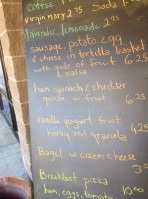 coffee
virgin mary 2.95 Soda
lavender lemonade 2.95
sausage, potato, egg
& cheese in tortilla basket
with side of fruit 6.25
& salsa
ham, spinach & cheddar
quiche w/ fruit 6.25
Vanilla yogurt, fruit
honey and granola 4.25
Bagel w/ cream cheese
3.
Breakfast pizza
ham, eggs, tomato 10.00